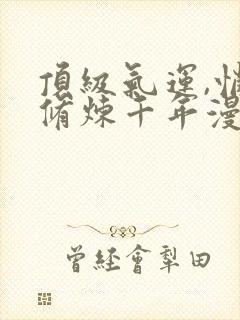 頂級氣運,悄
脩煉千年漫
曾經會犁田